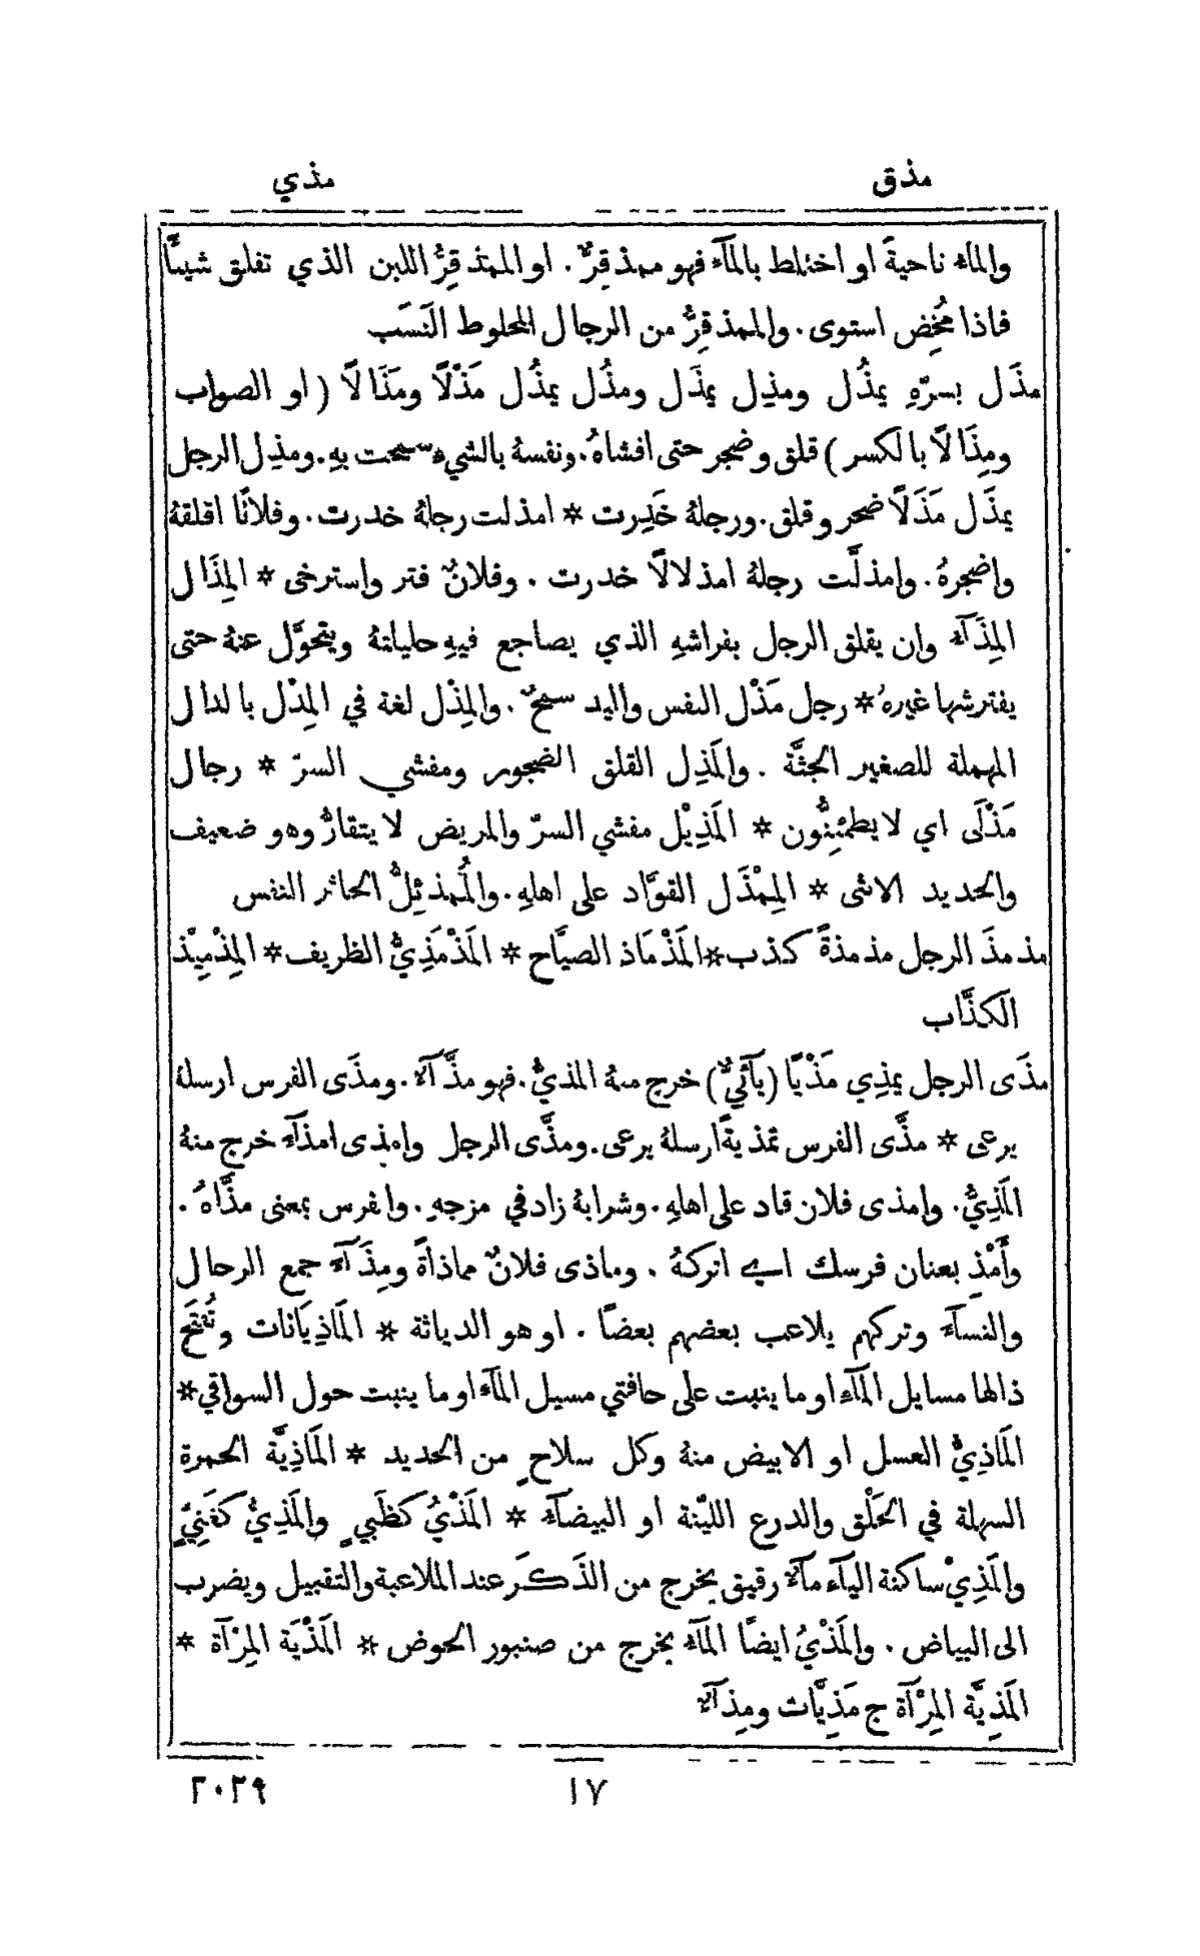 مذق
مذي
والماء ناحيةً او اختلط بالمآء فهو ممذقِرٌّ. او الممذقِرُّ اللبن الذي تفلق شيئًا
فاذا مُخِض استوى. والممذقِرُّ من الرجال المخلوط النَسَب
مذَل بسرّهِ يمذُل ومذِل يمذَل ومذُل يمذُل مَذْلًا ومَذَالًا (او الصواب
ومِذَالًا بالكسر) قلق وضجر حتى افشاهُ. ونفسهُ بالشيء سمحت بهِ. ومذِل الرجل
يمذَل مَذَلًا ضجر وقلق. ورجلهُ خَدِرت * امذلت رجلهُ خدرت. وفلانًا اقلقهُ
واضجرهُ. وامذلَّت رجلهُ امذلالًا خدرت. وفلانٌ فتر واسترخى * المِذَال
المِذَآء وان يقلق الرجل بفراشهِ الذي يضاجع فيهِ حليلتهُ ويتحوَّل عنهُ حتى
يفترشها غيرهُ * رجل مَذْل النفس واليد سمحٌ. والمِذْل لغة في المِدْل بالدال
المهملة للصغير الجثَّة. والمَذِل القلق الضجور ومفشي السرّ * رجال
مَذْلَى اي لا يطمئِنُّون * المَذِيْل مفشي السرّ والمريض لا يتقارُّ وهو ضعيف
والحديد الانثى * المِمْذَل القوَّاد على اهلهِ. والمُمذئِلُّ الخاثر النفس
مذمذَ الرجل مذمذةً كذب * المَذْمَاذ الصيَّاح * المَذْمَذِيُّ الظريف * المِذْمِيْذ
الكذَّاب
مذَى الرجل يمذِي مَذْيًا (يآئيٌّ) خرج منهُ المذيُّ. فهو مذَّآء. ومذَى الفرس ارسلهُ
يرعى * مذَّى الفرس تمذيةً ارسلهُ يرعى. ومذَّى الرجل وامذى امذآء خرج منهُ
المَذِيُّ. وامذى فلان قاد على اهلهِ. وشرابهُ زاد في مزجهِ. والفرس بمعنى مذَّاهُ.
وأَمْذِ بعنان فرسك اي اتركهُ. وماذى فلانٌ مماذاةً ومِذَآء جمع الرجال
والنسآء وتركهم يلاعب بعضهم بعضًا. او هو الدياثة * المَاذِيَانات وتُفتَح
ذالها مسايل المآء او ما ينبت على حافتي مسيل المآء او ما ينبت حول السواقي *
المَاذِيُّ العسل او الابيض منهُ وكل سلاحٍ من الحديد * المَاذِيَّة الخمرة
السهلة في الحَلْق والدرع الليّنة او البيضآء * المَذْيُ كظَبيٍ والمَذِيُّ كغَنِيٍّ
والمَذِيْ ساكنة اليآء مآء رقيق يخرج من الذَكَر عند الملاعبة والتقبيل ويضرب
الى البياض. والمَذْيُ ايضًا المآء يخرج من صنبور الحوض * المَذْيَة المِرْآة *
المَذِيَّة المِرْآة ج مَذِيَّات ومِذآء
٢٠٢٩
١٧